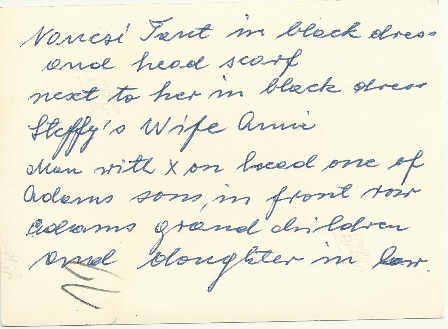 Nancsi Tant in black dress
and head scarf
next to her in black dress
Steffy's Wife Annie
Man with X on head one of
Adams sons, in front row
Adams grand children
and doughter in law.